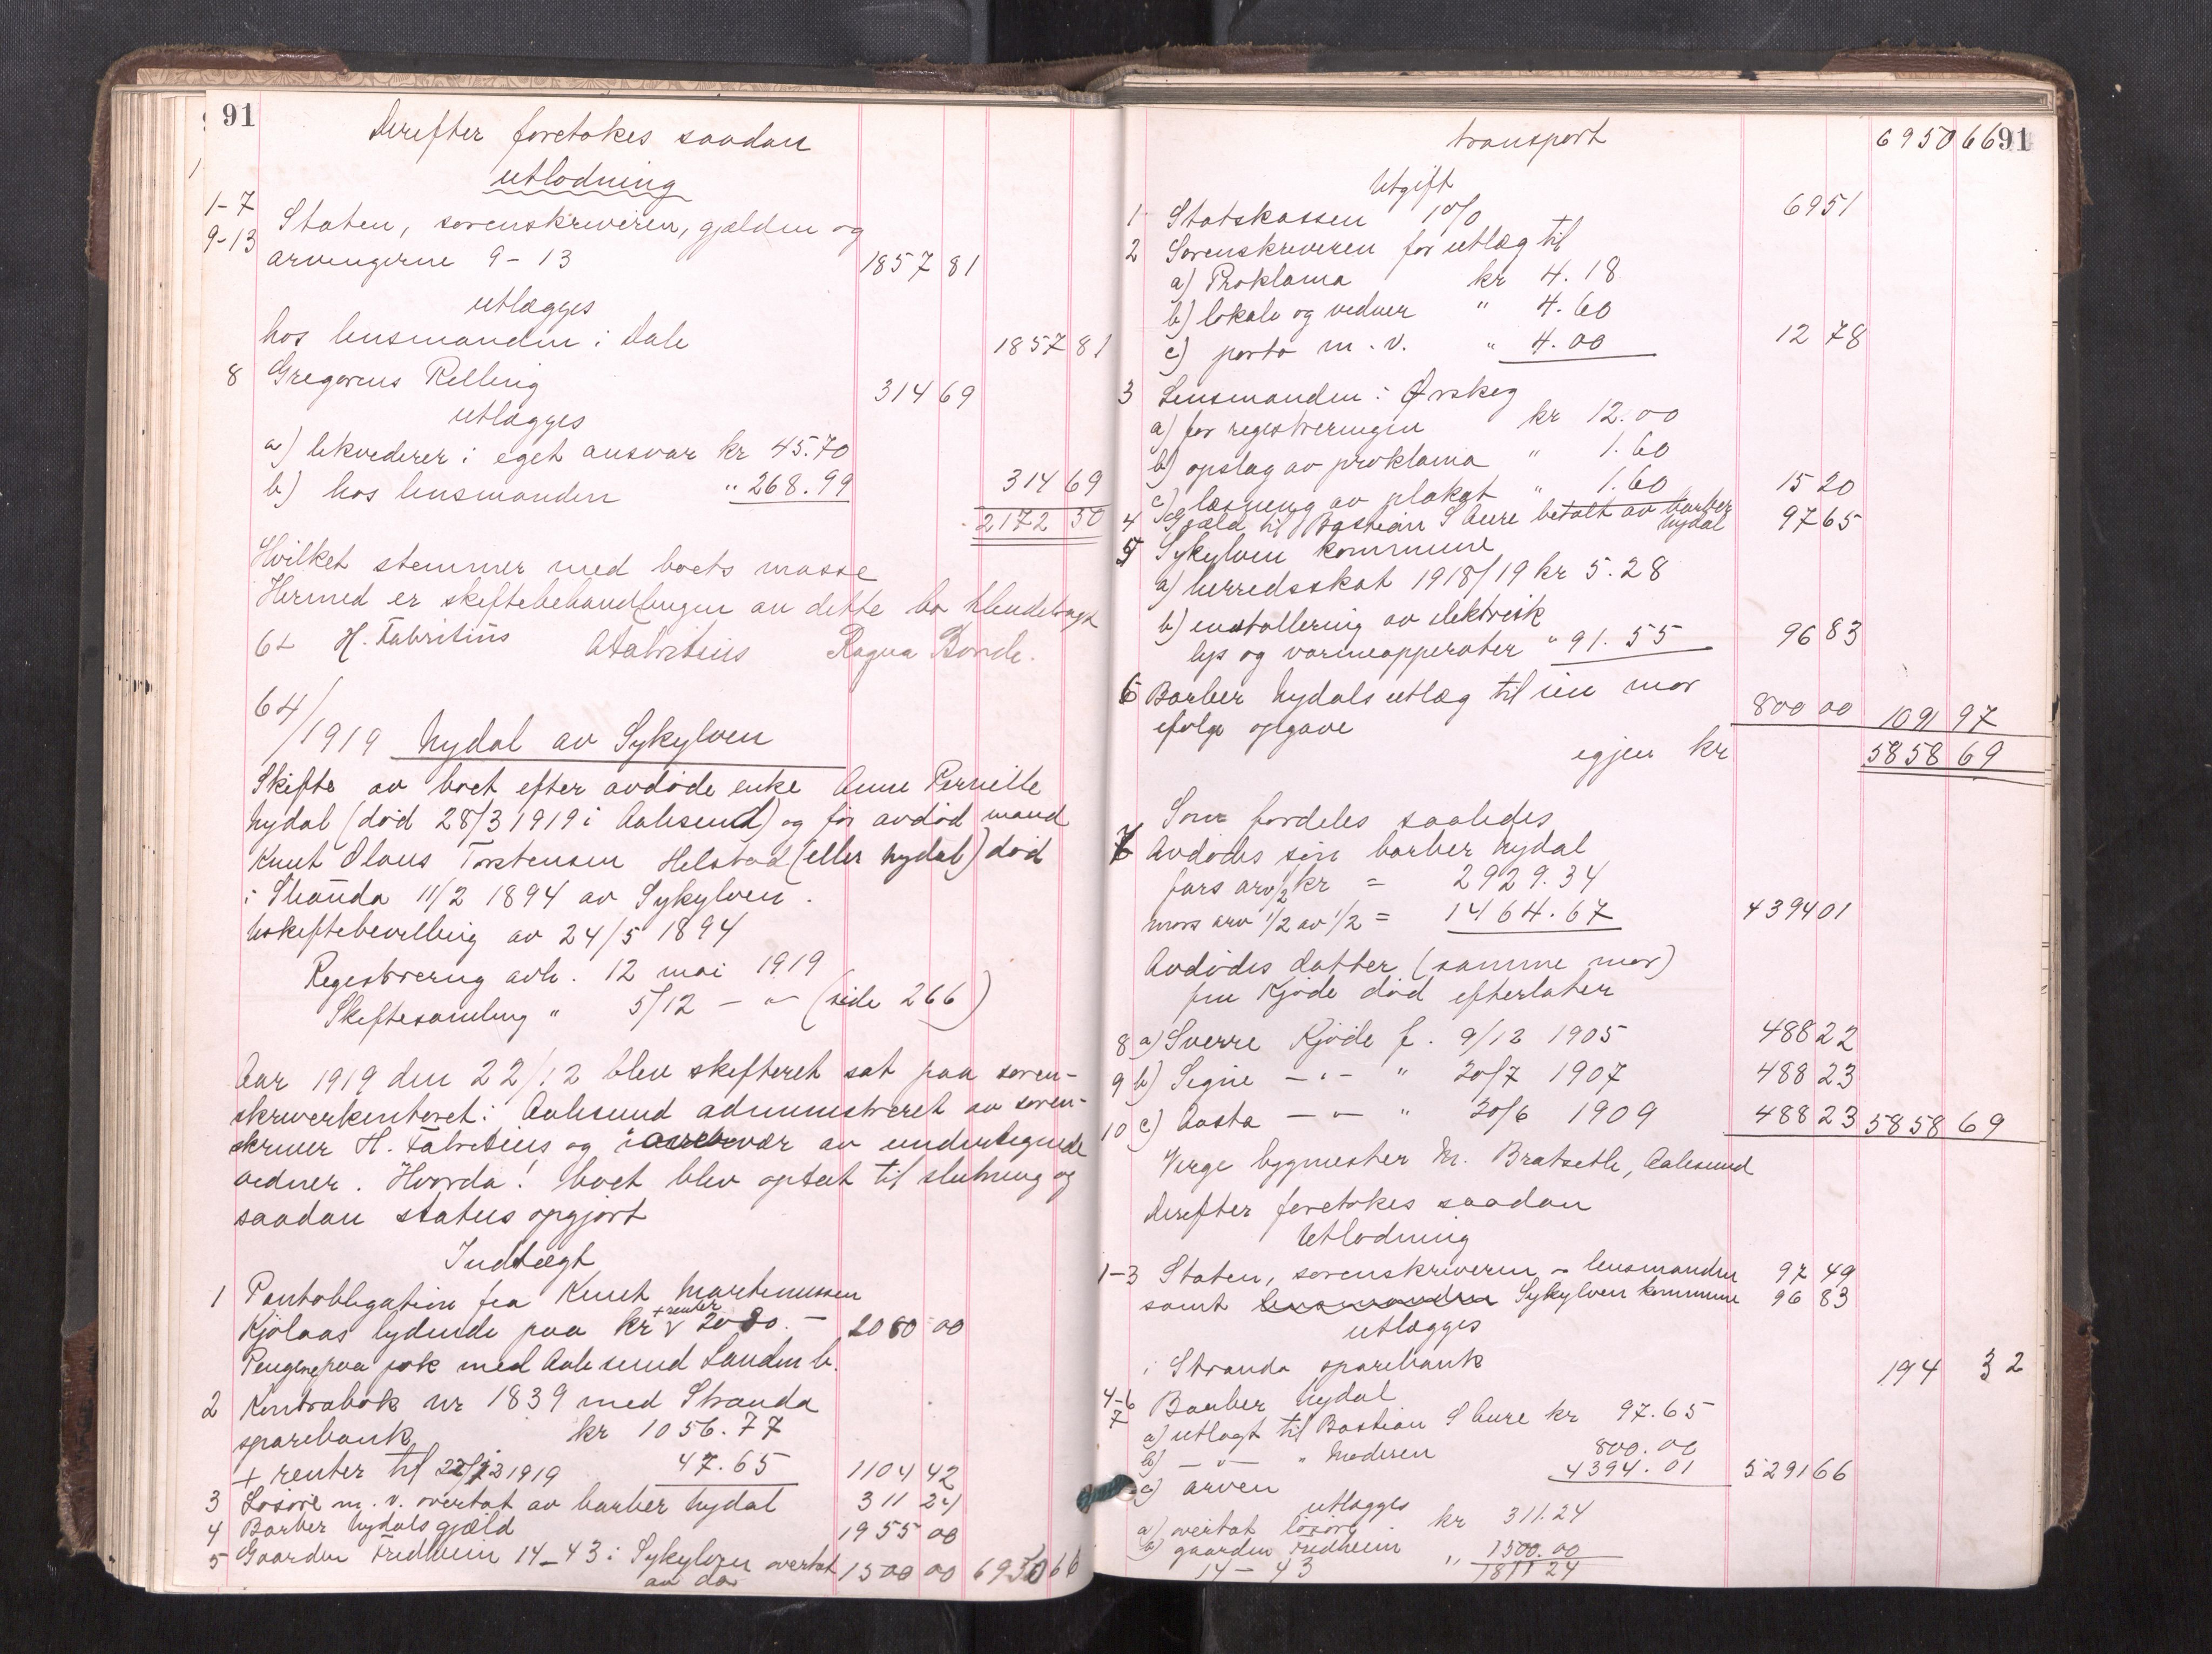 91
Derefter foretakes saadan
utlodning
1-7 Staten, sorenskriveren, gjælden og
9-13 arvingerne 9-13 1857 81
utlægges
hos lensmanden i Dale 1857 81
8 Gregorius Relling 314 69
utlægges
a) likviderer i eget ansvar kr 45.70
b) hos lensmanden " 268.99 314 69
2172 50
Hvilket stemmer med boets masse
Hermed er skiftebehandlingen av dette bo tilendebragt
H. Fabritius AFabritius Ragna Bonde.
64/1919 Nydal av Sykylven
Skifte av boet efter avdøde enke Anne Pernille
Nydal (død 28/3 1919 i Aalesund) og før avdød mand
Knut Olaus Torstensen Helstad (eller Nydal) død
i Stranda 11/2 1894 av Sykylven.
Uskiftebevilling av 24/5 1894
Registrering avh. 12 mai 1919
Skiftesamling " 5/12 - " - (side 266)
Aar 1919 den 22/12 blev skifteret sat paa soren-
skriverkontoret i Aalesund administreret av soren-
skriver H. Fabritius og i overvær av undertegnede
vidner. Hvorda! boet blev optat til slutning og
saadan status opgjort
Indtægt
1 Pantobligation fra Knut Martinussen
Kjølaas lydende paa kr 2000.- + renter 2080 00
Pengene paa bok med Aalesund Landm b.
2 Kontrabok nr 1839 med Stranda
sparebank kr 1056.77
+ renter til 22/12 1919 47.65 1104 42
3 Løsøre m.v. overtat av barber Nydal 311 24
4 Barber Nydals gjæld 1955 00
5 Gaarden Fredheim 14-43 i Sykylven overtat 1500 00 6950 66
av do
transport 6950 66 91
Utgift
1 Statskassen 1% 69 51
2 Sorenskriveren for utlæg til
a) Proklama kr 4.18
b) lokale og vidner " 4.60
c) porto m.v. " 4.00 12 78
3 Lensmanden i Ørskog
a) for registreringen kr 12.00
b) opslag av proklama " 1.60
c) læsning av plakat " 1.60 15 20
4 Gjæld til Bastian S Aure betalt av barber Nydal 97 65
5 Sykylven kommune
a) herredsskat 1918/19 kr 5.28
b) installering av elektrisk
lys og varmeapperater " 91.55 96 83
6 Barber Nydals utlæg til sin mor
ifølge opgave 800 00 1091 97
igjen kr 5858 69
Som fordeles saaledes
7 Avdødes søn barber Nydal
fars arv 1/2 kr = 2929.34
mors arv 1/2 av 1/2 = 1464.67 4394 01
Avdødes datter (samme mor)
fru Kjøde død efterlater
8 a) Sverre Kjøde f. 9/12 1905 488 22
9 b) Signe - " - " 20/7 1907 488 23
10 c) Aasta - " - " 20/6 1909 488 23 5858 69
Verge bygmester M. Bratseth, Aalesund
Derefter foretakes saadan
Utlodning
1-3 Staten, sorenskriveren - lensmanden 97 49
samt lensmanden Sykylven kommune 96 83
utlægges
i Stranda sparebank 194 32
4-6 Barber Nydal
7 a) utlagt til Bastian S Aure kr 97.65
b) - " - " Moderen 800.00
c) arven 4394.01 5291 66
utlægges
a) overtat løsøre kr 311.24
b) gaarden Fredheim " 1500.00
14-43 1811 24